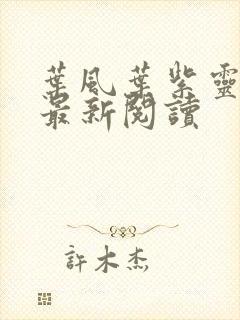 葉風葉紫靈
最新閱讀
許木杰